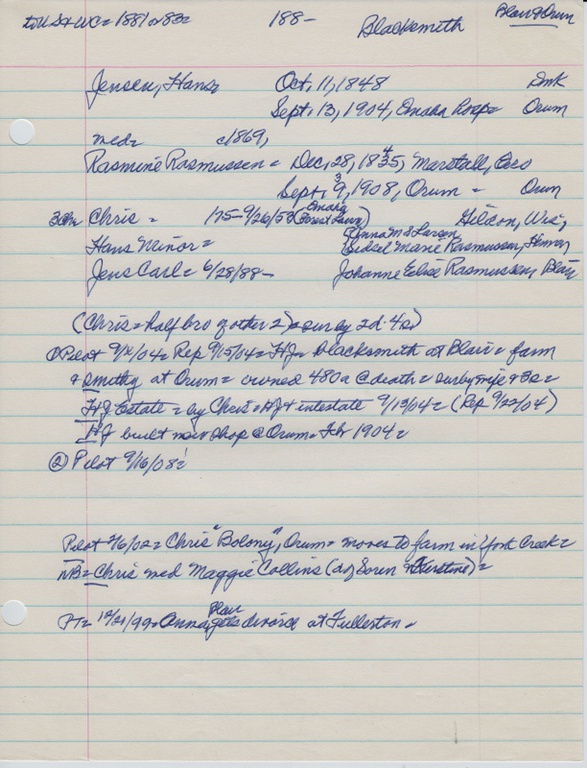 to US & WC = 1881 or 83= 188- Blacksmith Blair & Orum
Jensen, Hans= Oct. 11, 1848 Dmk
Sept. 13, 1904, Omaha Hosp= Orum
med= c1869,
Rasmine Rasmussen = Dec. 28, 1835, 4 Marstall,
Sept. 9, 3 1908, Orum = Orum
Chris = 1/25-9/26/53 (Omaha Forest Lawn) Wis,
Hans Meinor= Anna M S Larsen
Marie Rasmussen, Herman
Jens Carl = 6/28/88- Johanne Elise Rasmussen, Blair
(Chris = half bro of other 2) = sur by 2d 4s)
① Pilot 9/14/04 = Rep 9/15/04 = HJ = blacksmith at Blair = farm
& smithy at Orum = owned 480a @ death = sur by wife & 3s =
HJ Estate = by Chris = HJ + intestate 9/13/04 = (Rep 9/22/04)
HJ built new shop @ Orum = Feb 1904 =
② Pilot 9/16/08 =
Pilot 2/6/02 = Chris "Bolony", Orum = moves to farm in York Creek =
NB = Chris med Maggie Collins (d/o Soren & Kerstine) =
PT= 12/21/99 = Anna Blair gets divorce at Fullerton =